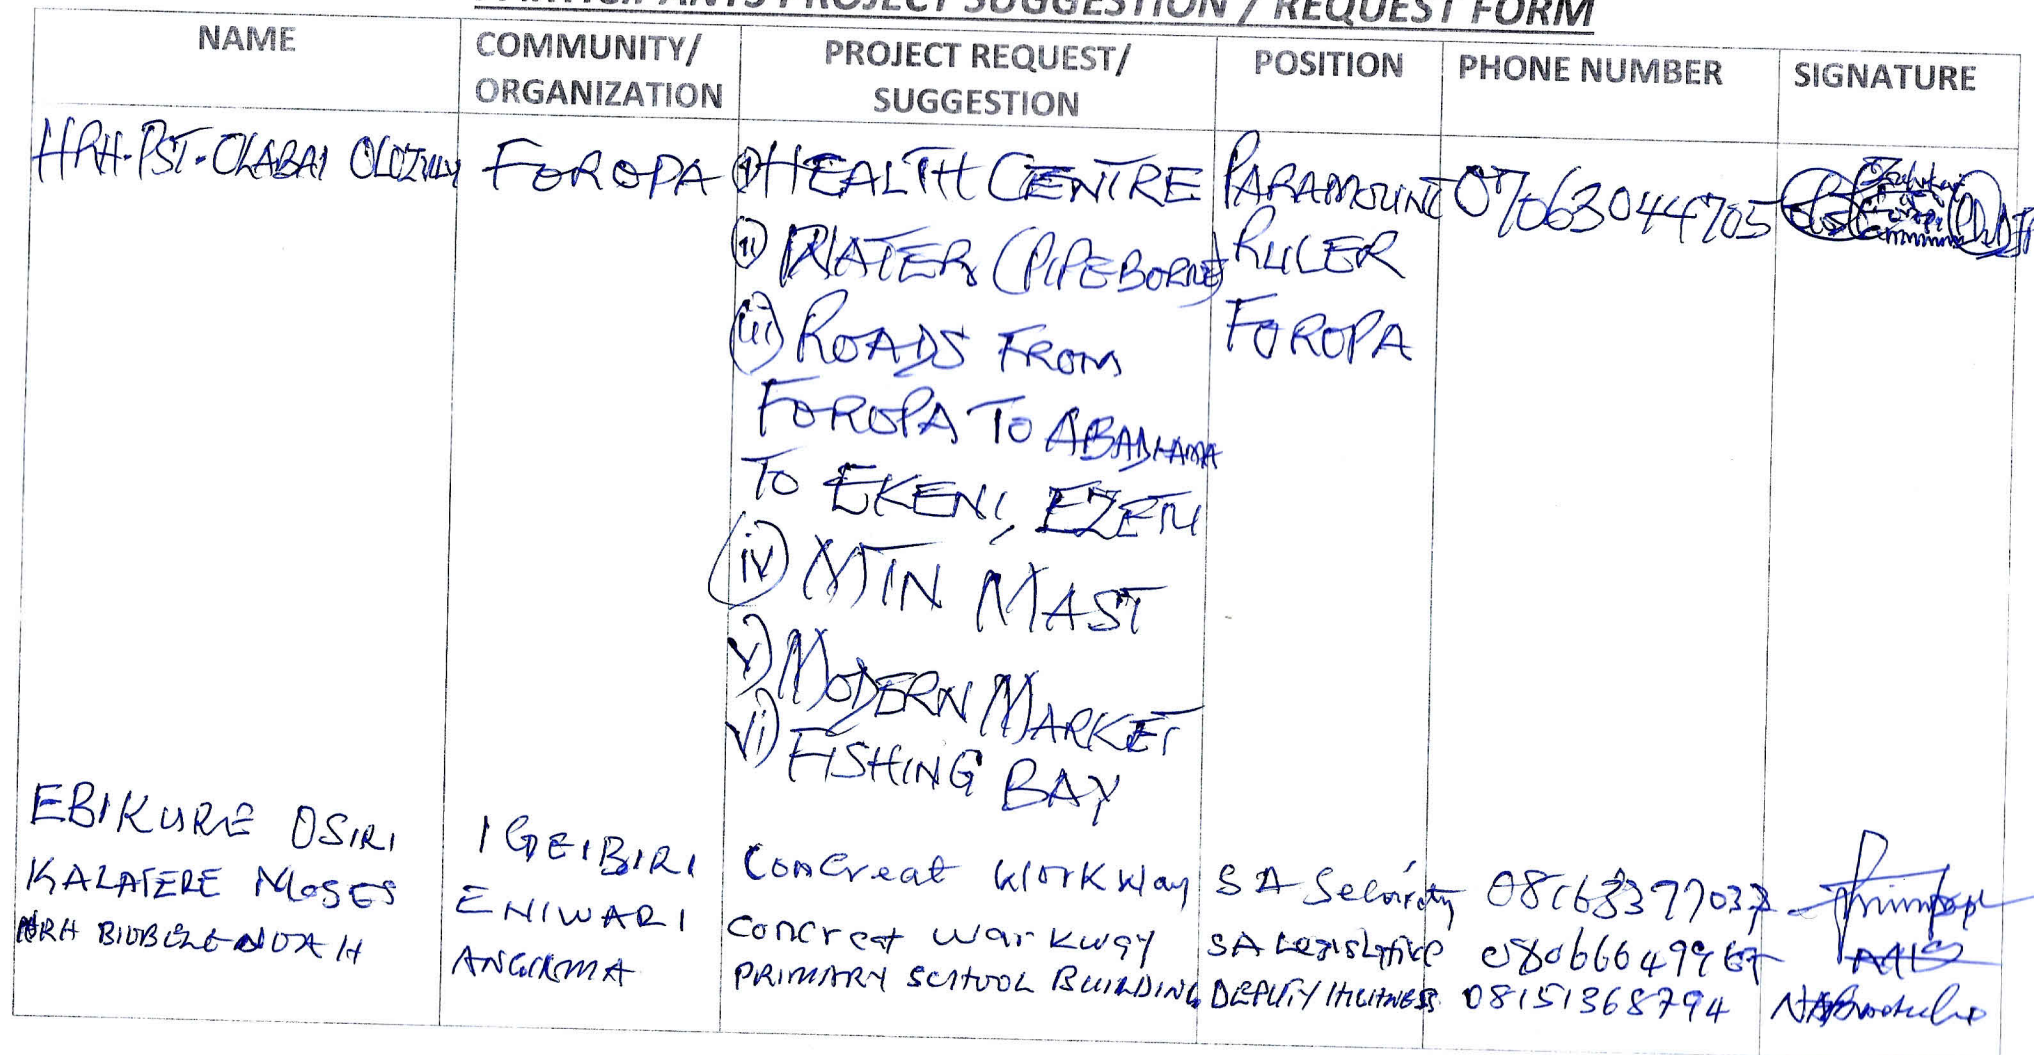 PARTICIPANTS PROJECT SUGGESTION / REQUEST FORM
NAME
COMMUNITY/
ORGANIZATION
PROJECT REQUEST/
SUGGESTION
POSITION
PHONE NUMBER
SIGNATURE
HRH-PST-OLABAI
FOROPA
i) HEALTH CENTRE
ii) WATER (PIPEBORNE)
iii) ROADS FROM
FOROPA TO
TO EKENI, EZETU
iv) MTN MAST
v) MODERN MARKET
vi) FISHING BAY
PARAMOUNT
RULER
FOROPA
07063044705
EBIKURE OSIRI
IGEIBIRI
Concreat workway
SA Security
KALATERE MOSES
ENIWARI
Concreet warkway
SA Legislative
HRH NOAH
PRIMARY SCHOOL BUILDING
DEPUTY HIGHNESS
08151368794